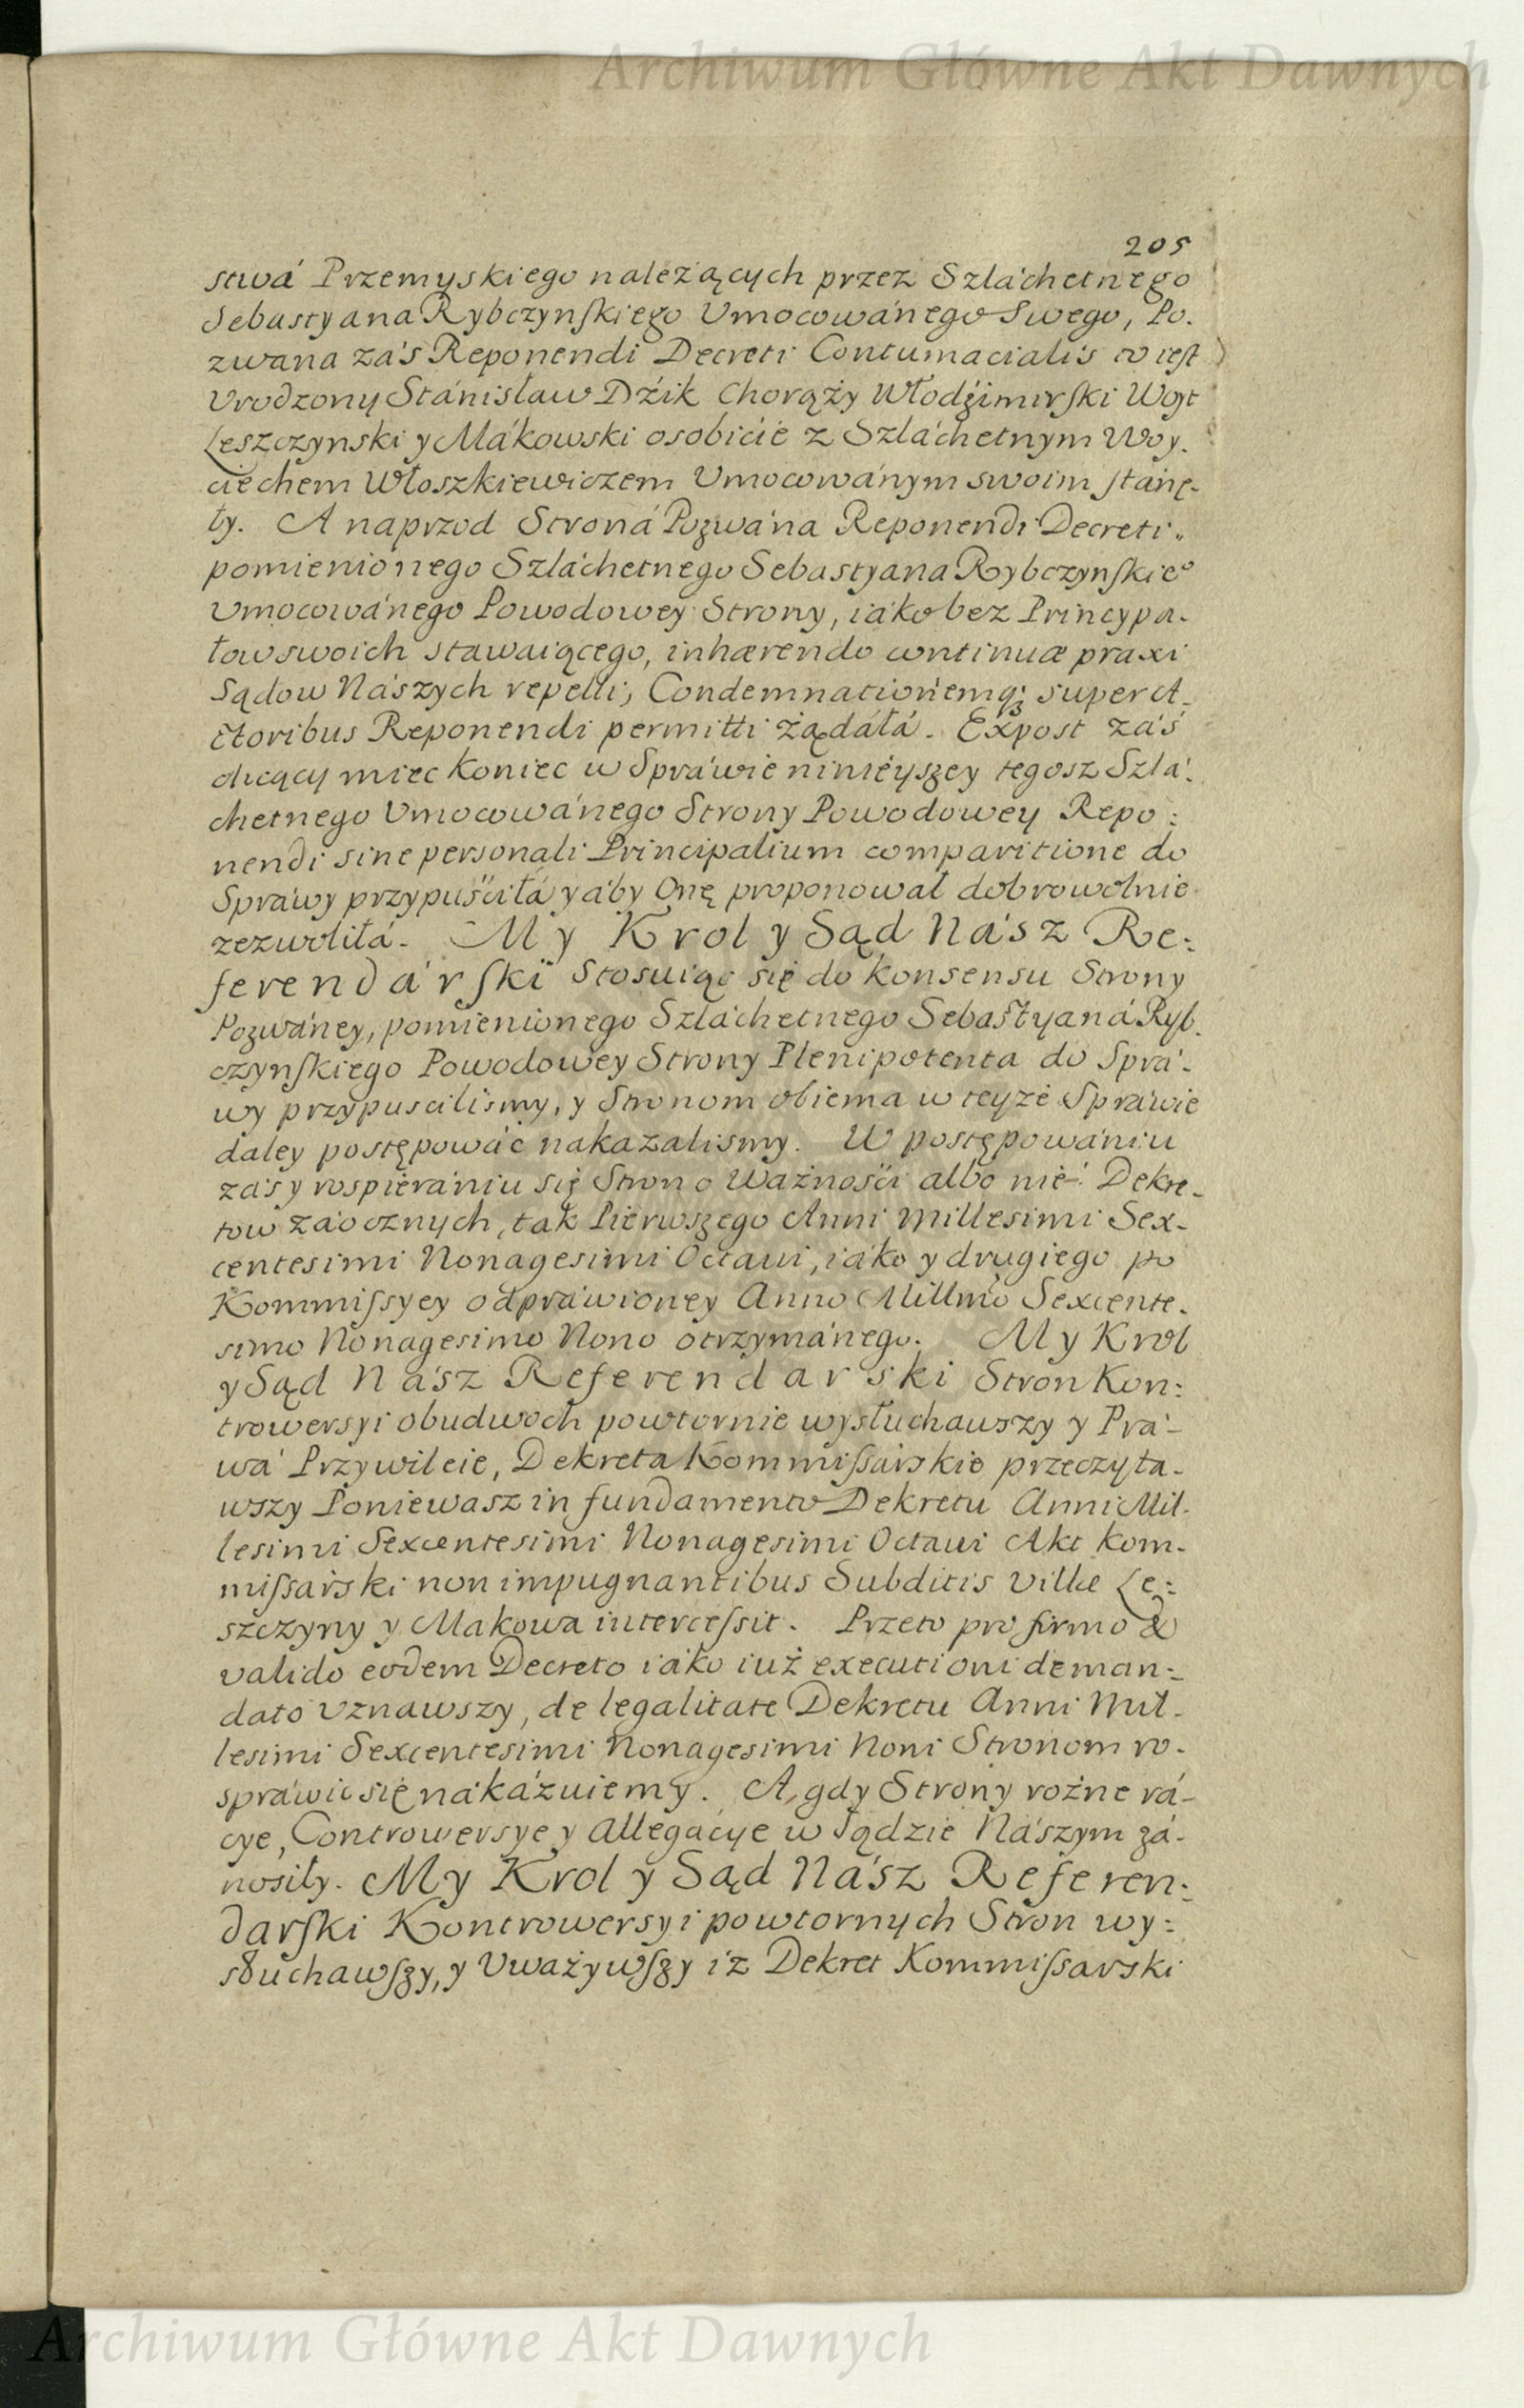 Archiwum Główne Akt Dawnych
205
stwá Przemyskiego nalezących przez Szláchetnego
Sebastyana Rybczynskiego Umocowánego Swego, Po.
zwana zás Reponendi Decreti Contumacialis co iest
Urodzony Stánisław Dźik Chorąży Włodźimirski Woyt
Leszczynski y Mákowski osobiście z Szláchetnym Woy.
ciechem Włoszkiewiczem Umocowánym swoim stánę-
ły. A naprzod Stroná Pozwána Reponendi Decreti.
pomienionego Szláchetnego Sebastyana Rybczynskieo
Umocowánego Powodowey Strony, iáko bez Princypa-
łow swoich stawaiącego, inhærendo continuæ praxi
Sądow Nászych repelli, Condemnationemq; super A-
ctoribus Reponendi permitti żądáłá. Expost záś
chcący miec koniec w Spráwie ninieyszey tegosz Szlá-
chetnego Umocowánego Strony Powodowey Repo:
nendi sine personali Principalium comparitione do
Spráwy przypuśćiłá y áby Onę proponował dobrowolnie
zezwoliłá. My Krol y Sąd Nász Re:
ferendárski Stosuiąc się do konsensu Strony
Pozwáney, pomienionego Szláchetnego Sebastyaná Ryb.
czynskiego Powodowey Strony Plenipotenta do Sprá-
wy przypuscilismy, y Stronom obiema w teyże Spráwie
daley postępowáć nakazalismy. W postępowániu
zás y rospierániu się Stron o Ważnośći albo nie: Dekre-
tow Záocznych, tak Pierwszego Anni Millesimi Sex-
centesimi Nonagesimi Octaui, iáko y drugiego po
Kommissyey odpráwioney Anno Millmo Sexcente.
simo Nonagesimo Nono otrzymánego. My Krol
y Sąd Nász Referendarski Stron Kon:
trowersyi obudwoch powtornie wysłuchawszy y Prá-
wá Przywileie, Dekreta Kommissárskie przeczyta-
wszy Poniewasz in fundamento Dekretu Anni Mil-
lesimi Sexcentesimi Nonagesimi Octaui Akt Kom-
missárski non impugnantibus Subditis Villæ Le:
szczyny y Makowa intercessit. Przeto pro firmo &
valido eodem Decreto iáko iuż executioni deman:
dato Uznawszy, de legalitate Dekretu Anni Mil-
lesimi Sexcentesimi Nonagesimi Noni Stronom ro-
spráwic się nakázuiemy. A gdy Strony rożne rá-
cye, Controwersye y Allegácye w Sądzie Nászym zá-
nosiły. My Krol y Sąd Nász Referen:
darski Kontrowersyi powtornych Stron wy:
słuchawszy, y Uważywszy iz Dekret Kommissarski
Archiwum Główne Akt Dawnych